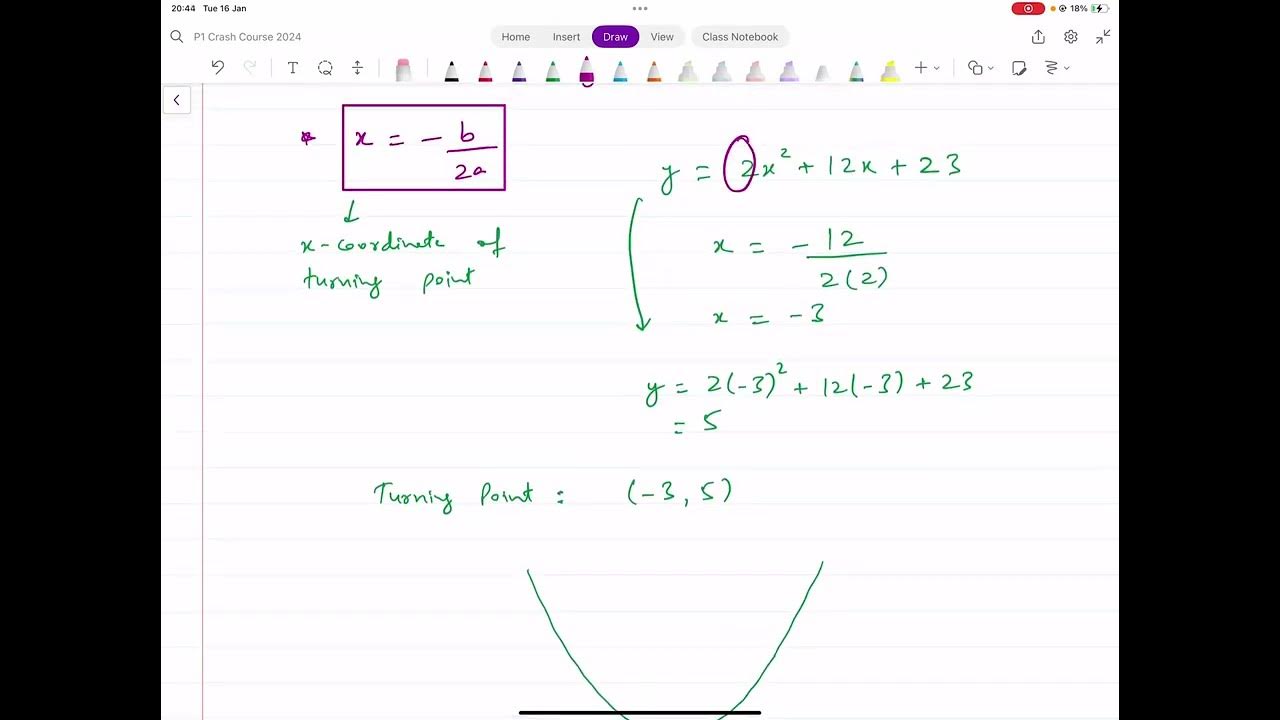 20:44 Tue 16 Jan
18%
P1 Crash Course 2024
Home Insert Draw View Class Notebook
T
* x = - b/2a
↓
x-coordinate of
turning point
y = 2x² + 12x + 23
x = - 12/2(2)
x = -3
y = 2(-3)² + 12(-3) + 23
= 5
Turning Point : (-3, 5)